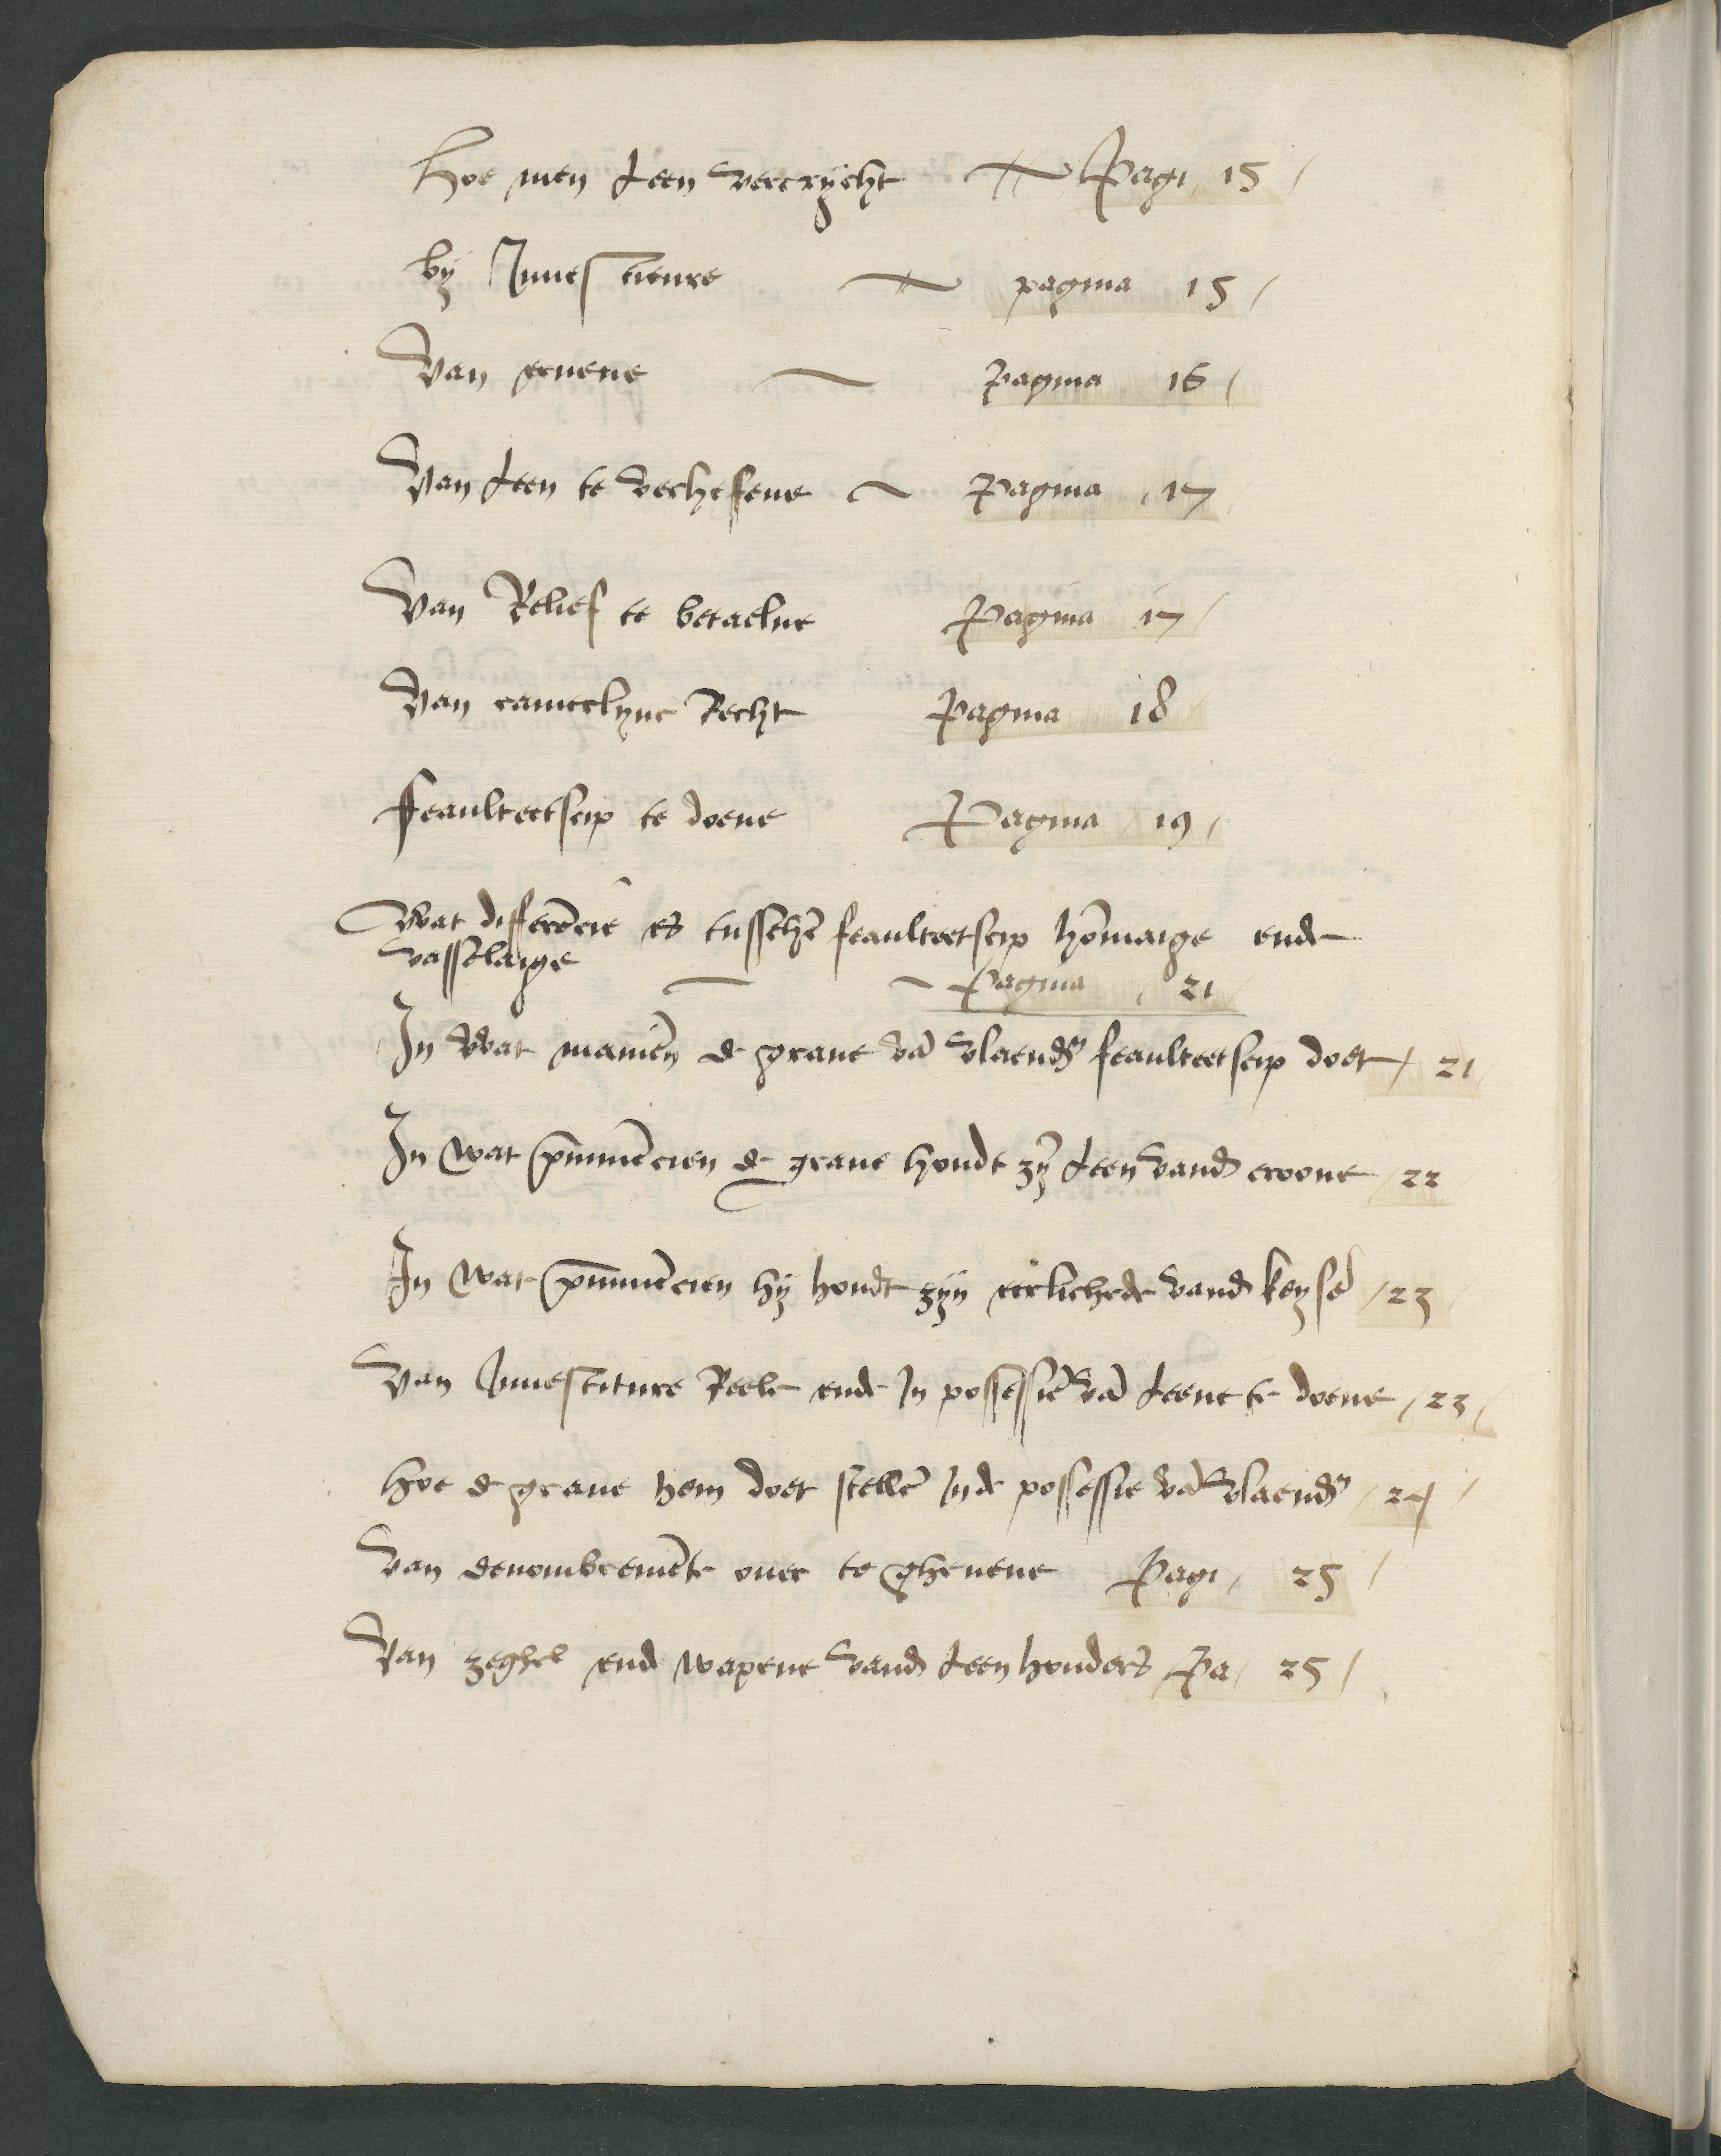 Hoe men Leen vercrijcht Pagi 15 /
bij Inuestieure pagina 15 /
Van eruene pagina 16 /
Van Leen te verheffene pagina / 17
Van Relief te betaelne pagina 17 /
Van camerlync Recht pagina 18
ffeaulteetscip te doene Pagina / 19 /
Wat differēcie es tusschē feaulteetscip hōmaige ende
vasselaige Pagina / 21 /
In wat maniēn de graue vā vlaendr̄ feaulteetscip doet / 21
In wat de graue houdt zȳ Leen vand croone / 22
In wat hij houdt zijn eerlichede vand keysē / 23
Van Inuestiture Reele ende In possessie vā Leene te doene / 23 /
Hoe de graue hem doet stellē Inde possessie vā vlaendr̄ / 24 /
Van denombremēte ouer te gheuene Pagi / 25 /
Van zeghel ende wapene vand Leenhouders Pa / 25 /